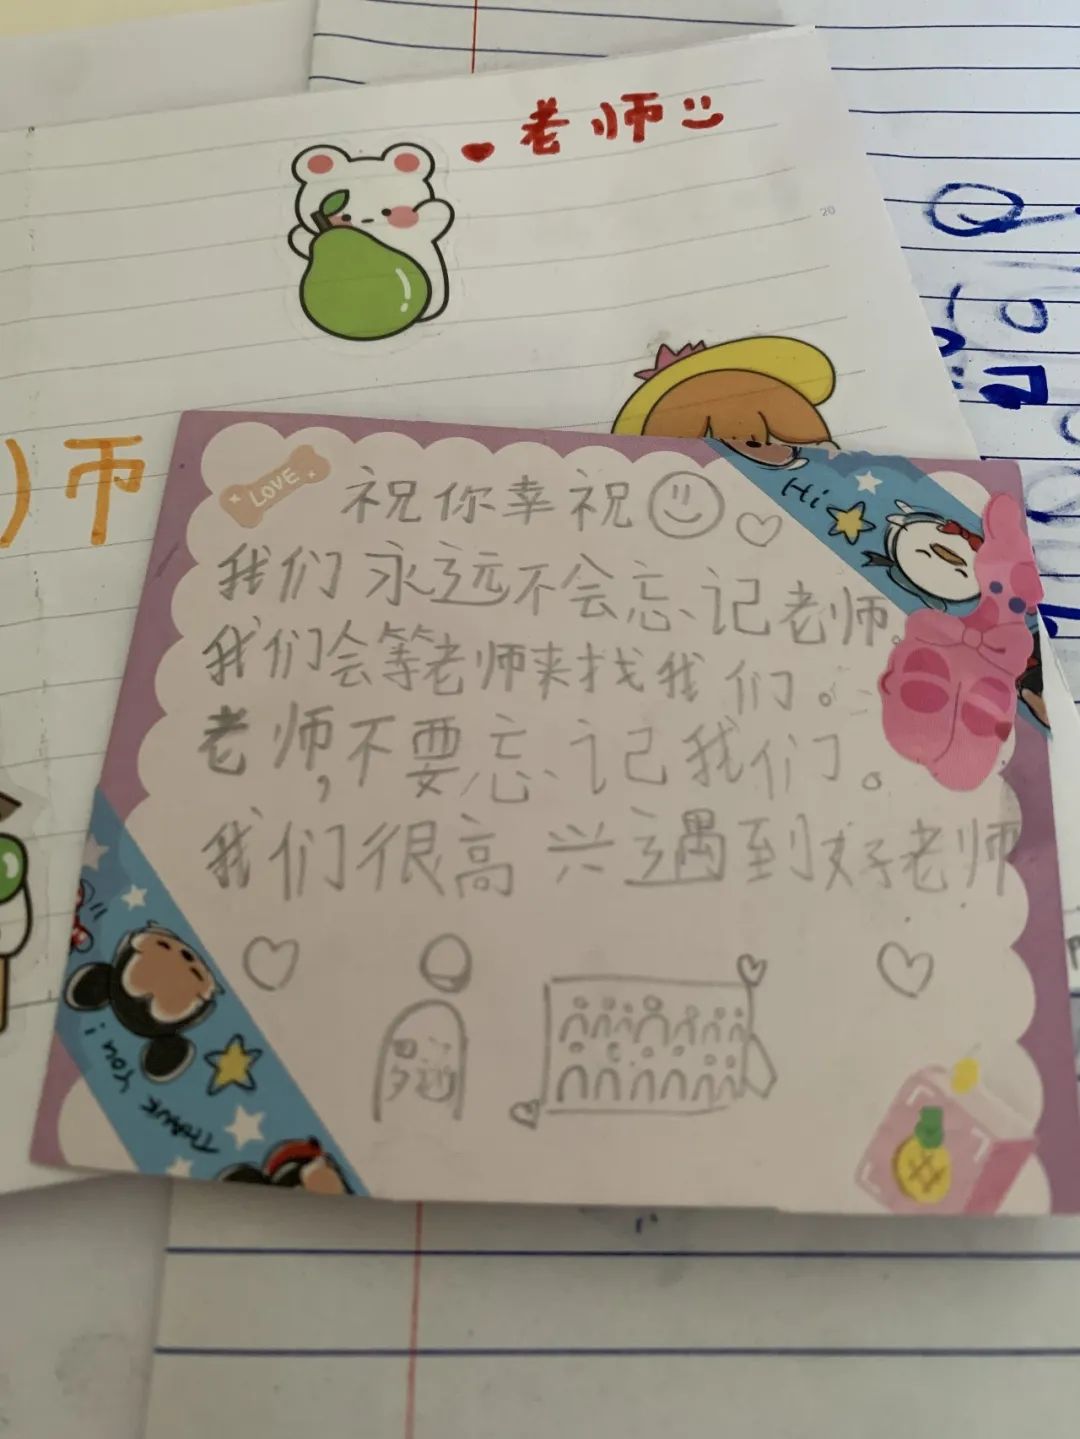 老师
20
师
LOVE
Hi
祝你幸祝
我们永远不会忘记老师。
我们会等老师来找我们。
老师,不要忘记我们。
我们很高兴遇到好老师
THANK YOU!